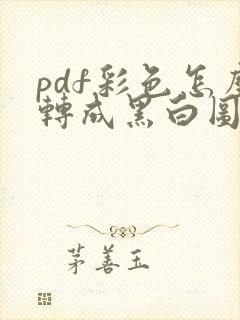 pdf彩色怎麼
轉成黑白圖
茅善玉